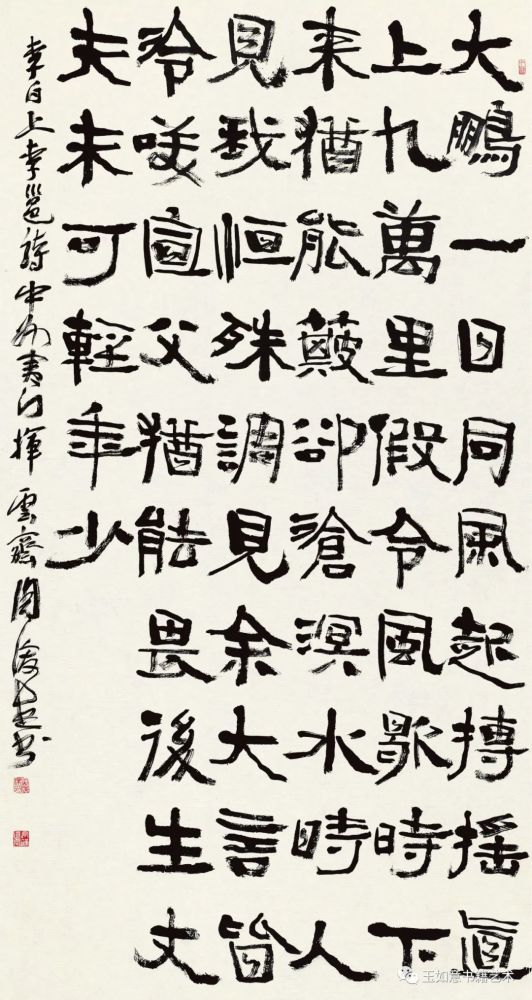 大鵬一日同風起摶摇直
上九萬里假令風歇時下
来猶能簸卻滄溟水時人
見我恒殊調見余大言皆
冷笑宣父猶能畏後生丈
夫未可輕年少
李白上李邕詩中州夷门揮雲齋周俊杰书
玉如意书籍艺术